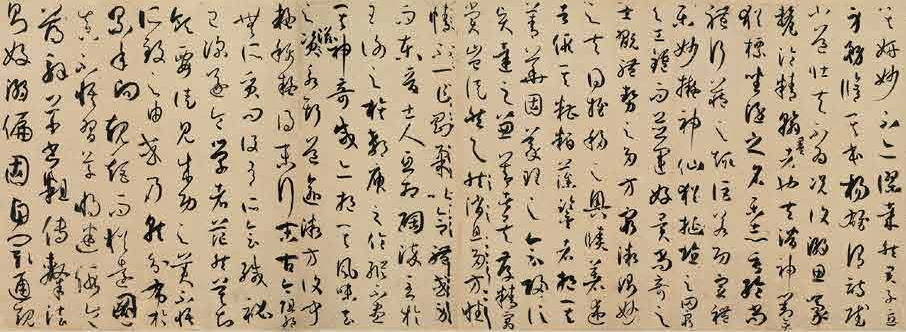 其妍妙不亦謬哉然君子立
身務脩其本楊雄謂詩賦
小道壯夫不為況復溺思豪
氂淪精翰墨者也夫潛神對弈
猶標坐隱之名樂志垂綸尚
體行藏之趣詎若功宣禮
樂妙擬神仙猶埏埴之罔窮
與工鑪而並運好異尚奇之
士翫體勢之多方窮微測妙
之夫得推移之奧賾著述
者假其糟粕藻鑒者挹其
菁華固義理之會歸信
賢達之兼善者矣存精寓
賞豈徒然與消息多方性
情不一乍剛柔以合體忽勞
而東晉士人互相陶淬至於
王謝之族郗庾之倫縱不盡
其神奇咸亦挹其風味去
之滋永斯道愈微方復聞
疑稱疑得末行末古今阻絕
無所質問設有所會緘祕
已深遂令學者茫然莫知
領要徒見成功之美不悟
所致之由或乃就分布於
累年向規矩而猶遠圖
真不悟習草將迷假令
薄解草書粗傳隸法
則好溺偏固自閡通規